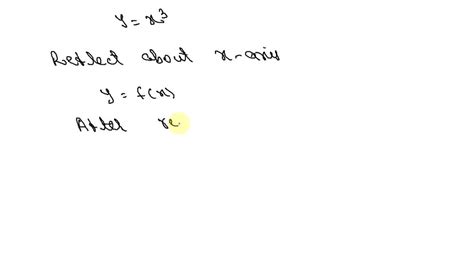 y = x³
Reflect about x-axis
y = f(x)
After re